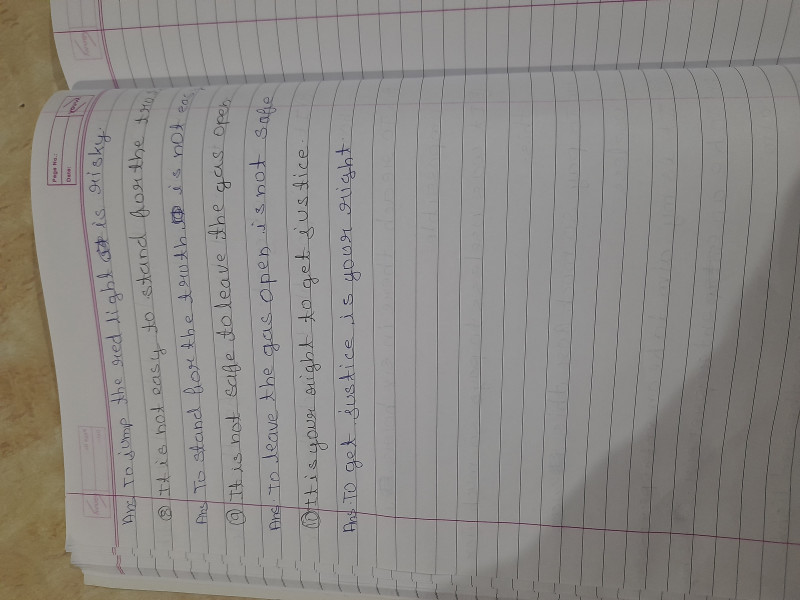 Page No.:
Date:
Ans. To jump the red light is risky.
⑧ It is not easy to stand for the
Ans To stand for the truth is not
⑨ It is not safe to leave the gas open
Ans. To leave the gas open is not safe
⑩ It is your right to get justice.
Ans. To get justice is your right.